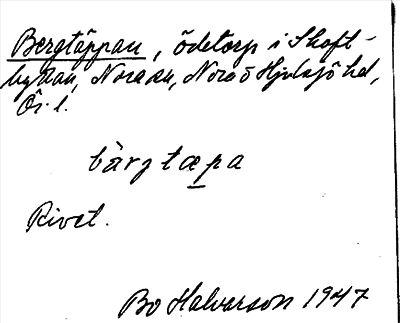 Bergtäppan, ödetorp i Skoft-
byRan, Nora sn, Nora o Hjulsjö hd,
Ör. l.
bàrgtæpa
Rivet.
Bo Halvarson 1947